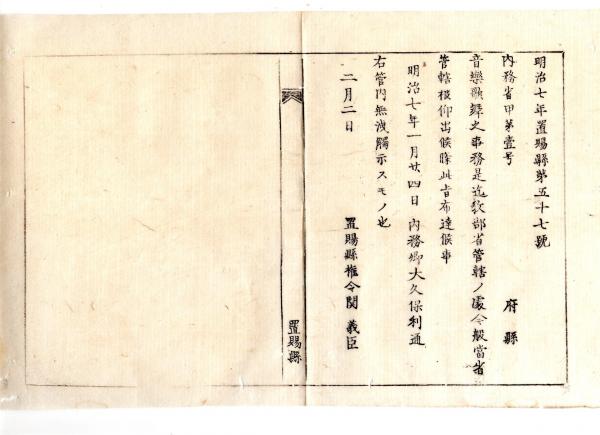 明治七年置賜縣第五十七號
内務省甲第壹号
府縣
音樂歌舞之事務是迄教部省管轄ノ處今般當省
管轄被仰出候條此旨布達候事
明治七年一月廿四日 内務卿大久保利通
右管内無洩觸示スモノ也
二月二日 置賜縣権令関義臣
置賜縣